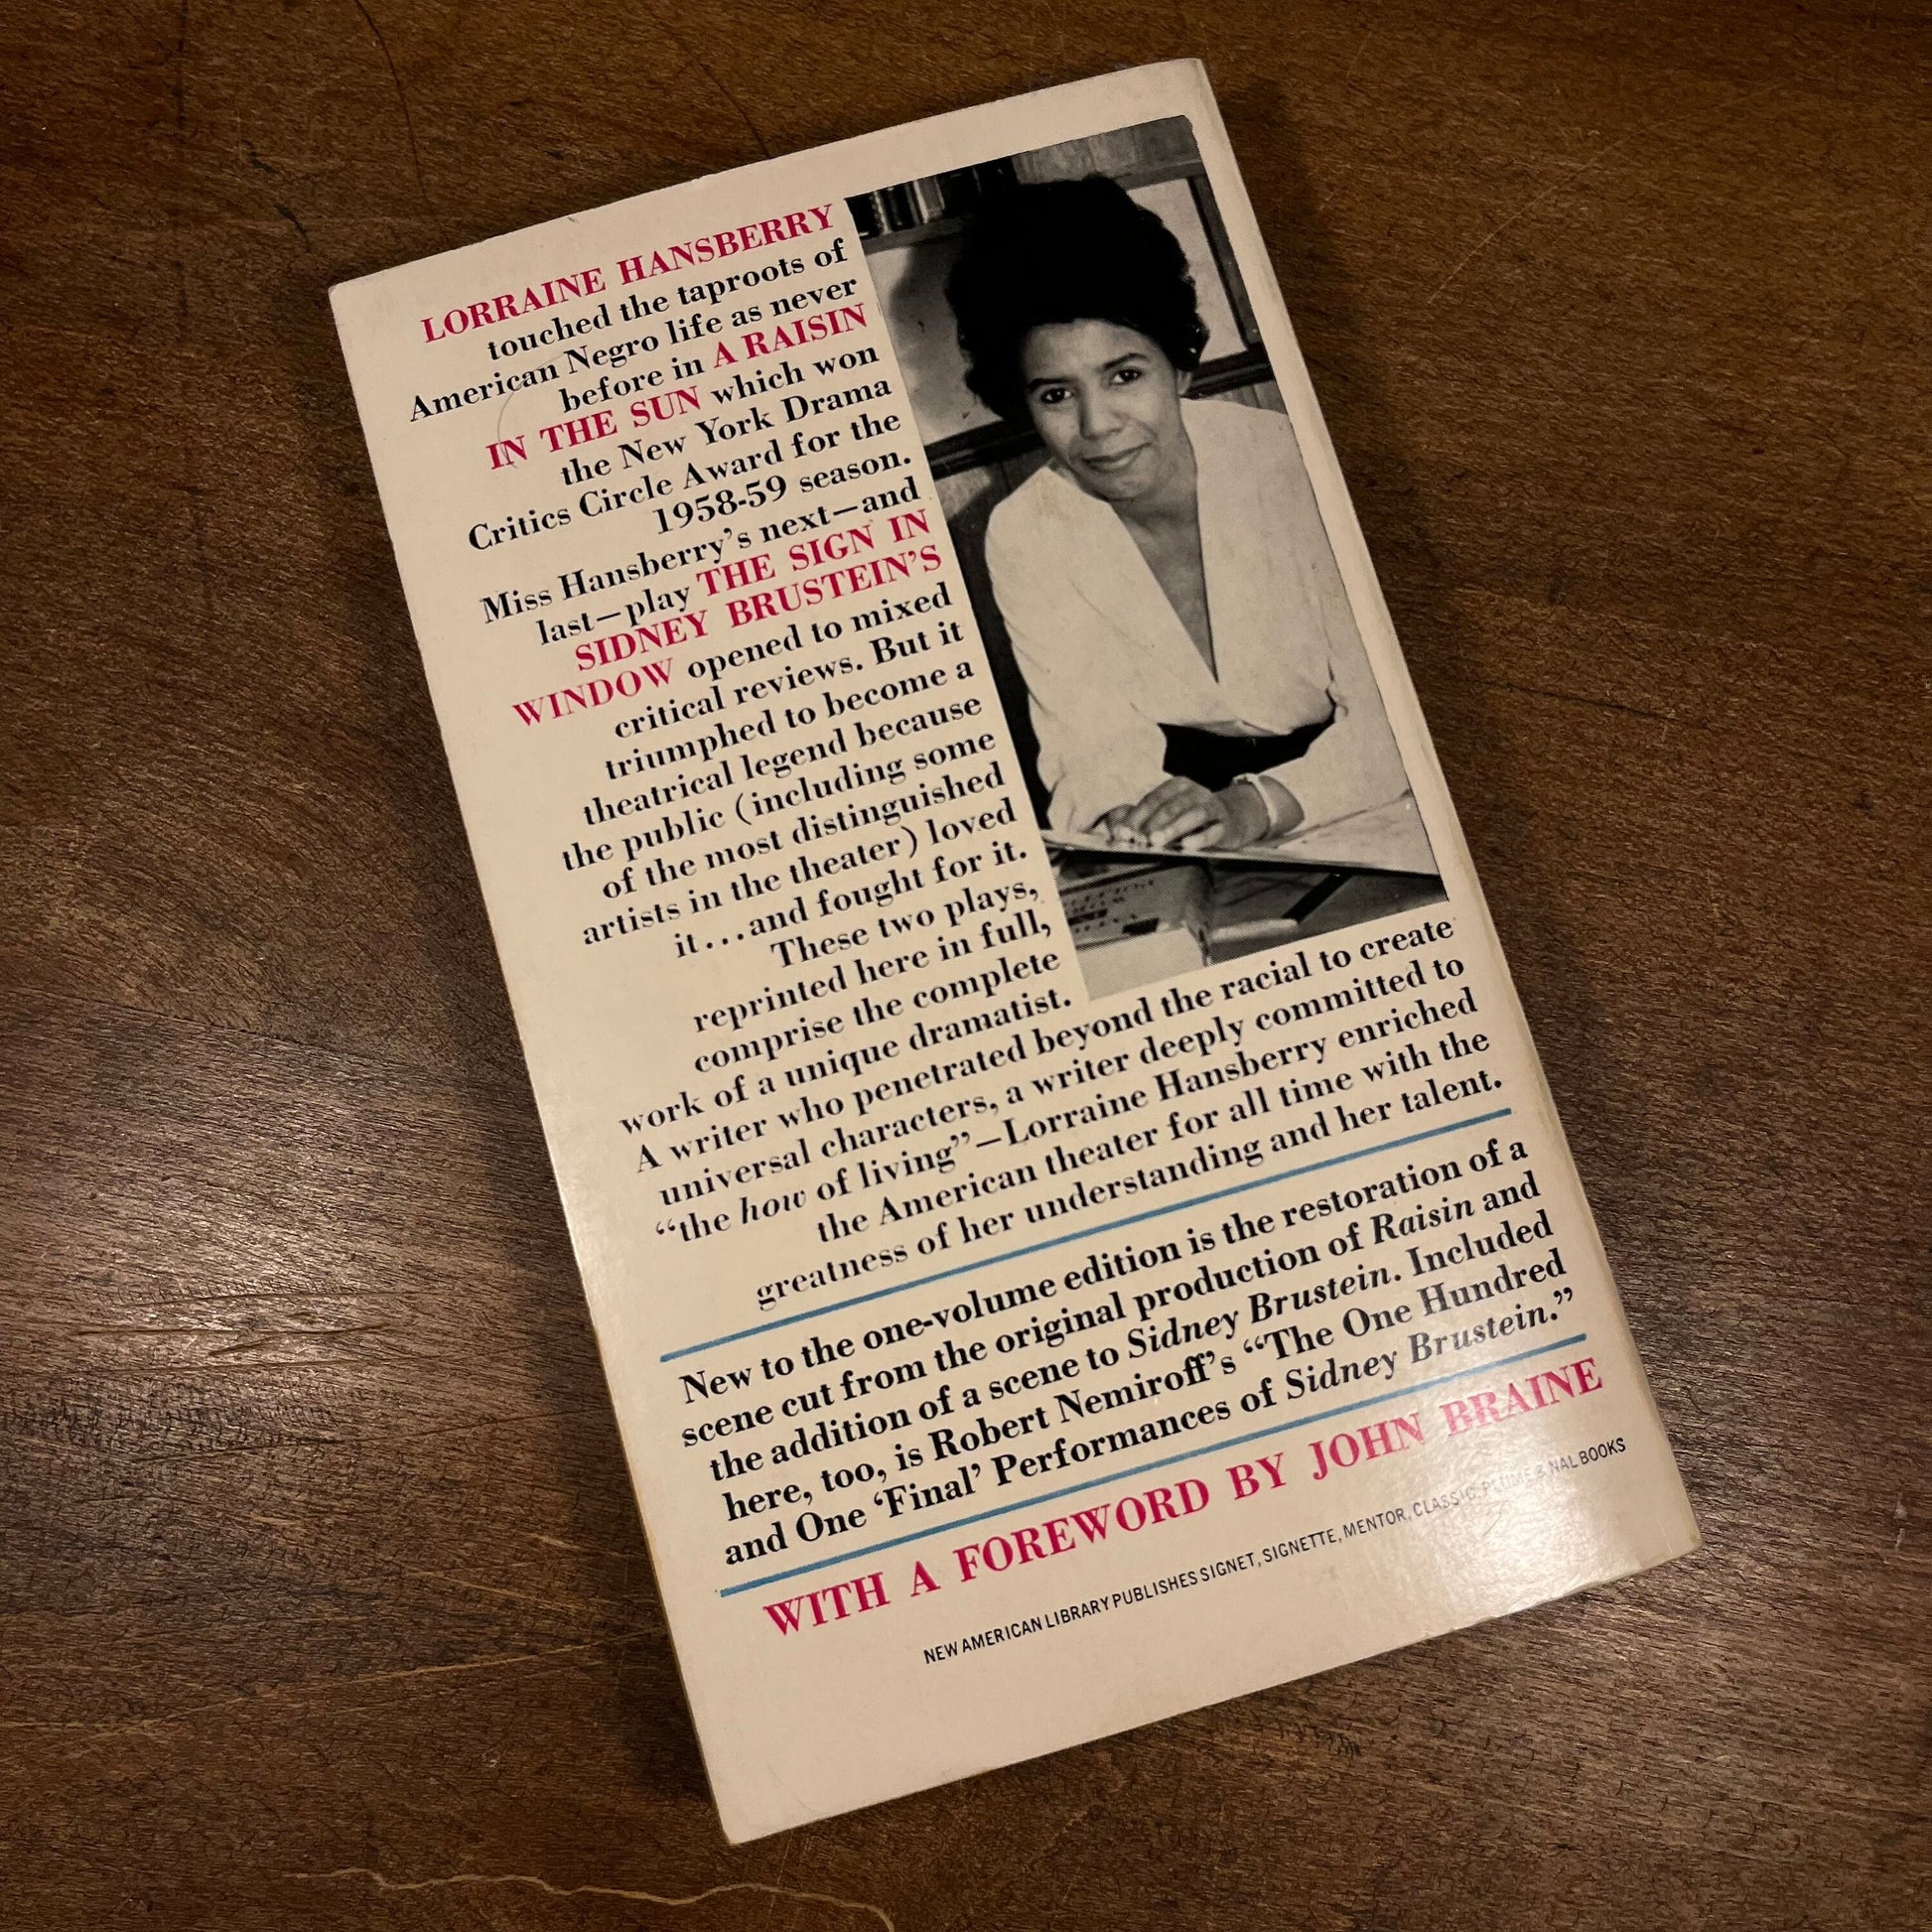 LORRAINE HANSBERRY
touched the taproots of
American Negro life as never
before in A RAISIN
IN THE SUN which won
the New York Drama
Critics Circle Award for the
1958-59 season.
Miss Hansberry's next—and
last—play THE SIGN IN
SIDNEY BRUSTEIN'S
WINDOW opened to mixed
critical reviews. But it
triumphed to become a
theatrical legend because
the public (including some
of the most distinguished
artists in the theater) loved
it...and fought for it.
These two plays,
reprinted here in full,
comprise the complete
work of a unique dramatist.
A writer who penetrated beyond the racial to create
universal characters, a writer deeply committed to
“the how of living”—Lorraine Hansberry enriched
the American theater for all time with the
greatness of her understanding and her talent.
New to the one-volume edition is the restoration of a
scene cut from the original production of Raisin and
the addition of a scene to Sidney Brustein. Included
here, too, is Robert Nemiroff's “The One Hundred
and One ‘Final’ Performances of Sidney Brustein.”
WITH A FOREWORD BY JOHN BRAINE
NEW AMERICAN LIBRARY PUBLISHES SIGNET, SIGNETTE, MENTOR, CLASSIC, PLUME & NAL BOOKS